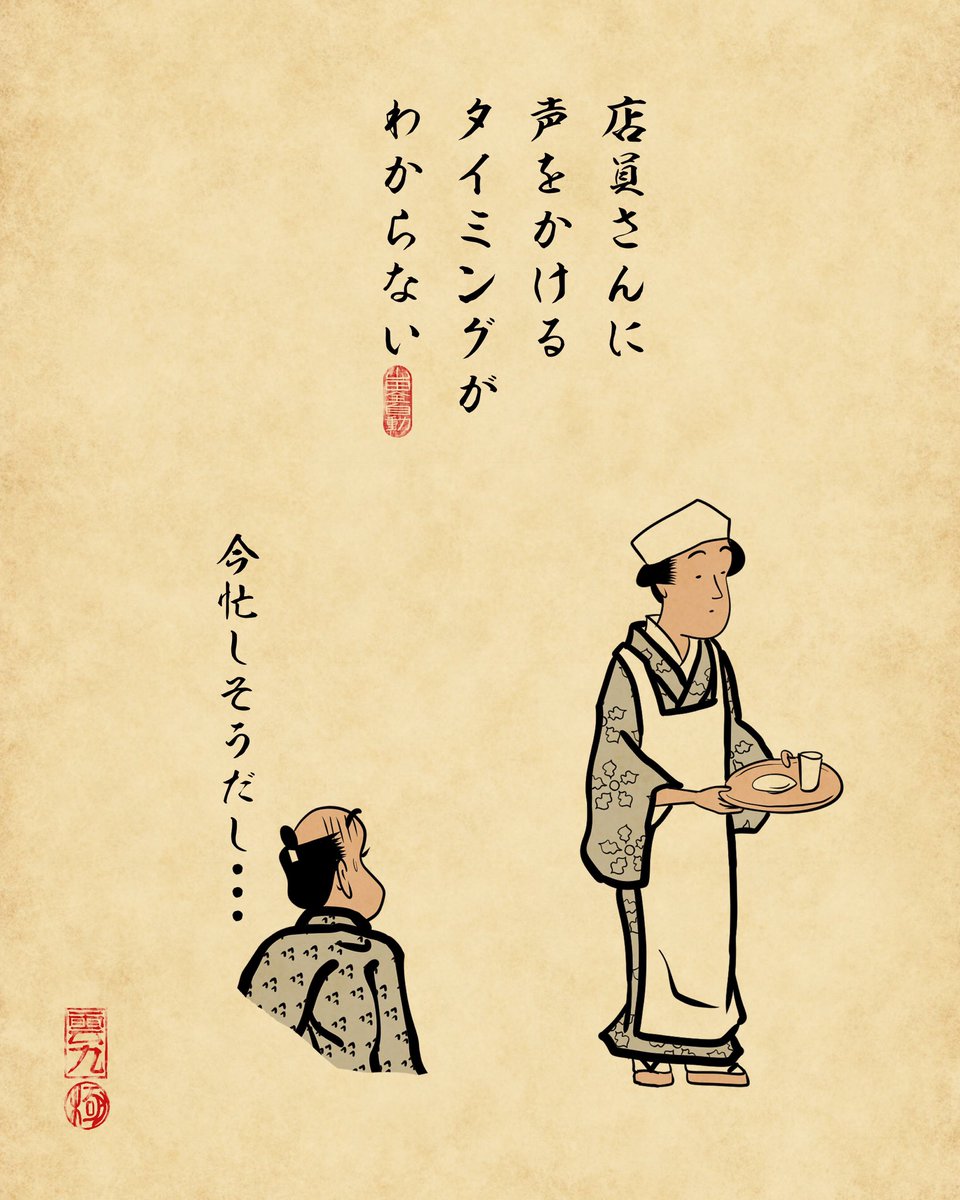 店員さんに
声をかける
タイミングが
わからない
今忙しそうだし・・・